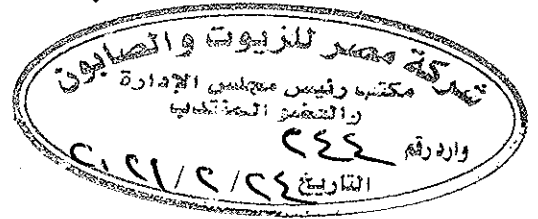 شركة مصر للزيوت والصابون
مكتب رئيس مجلس الإدارة
والعضو المنتدب
وارد رقم ٣٤٤
التاريخ ٢٠٢١/٢/٢٤